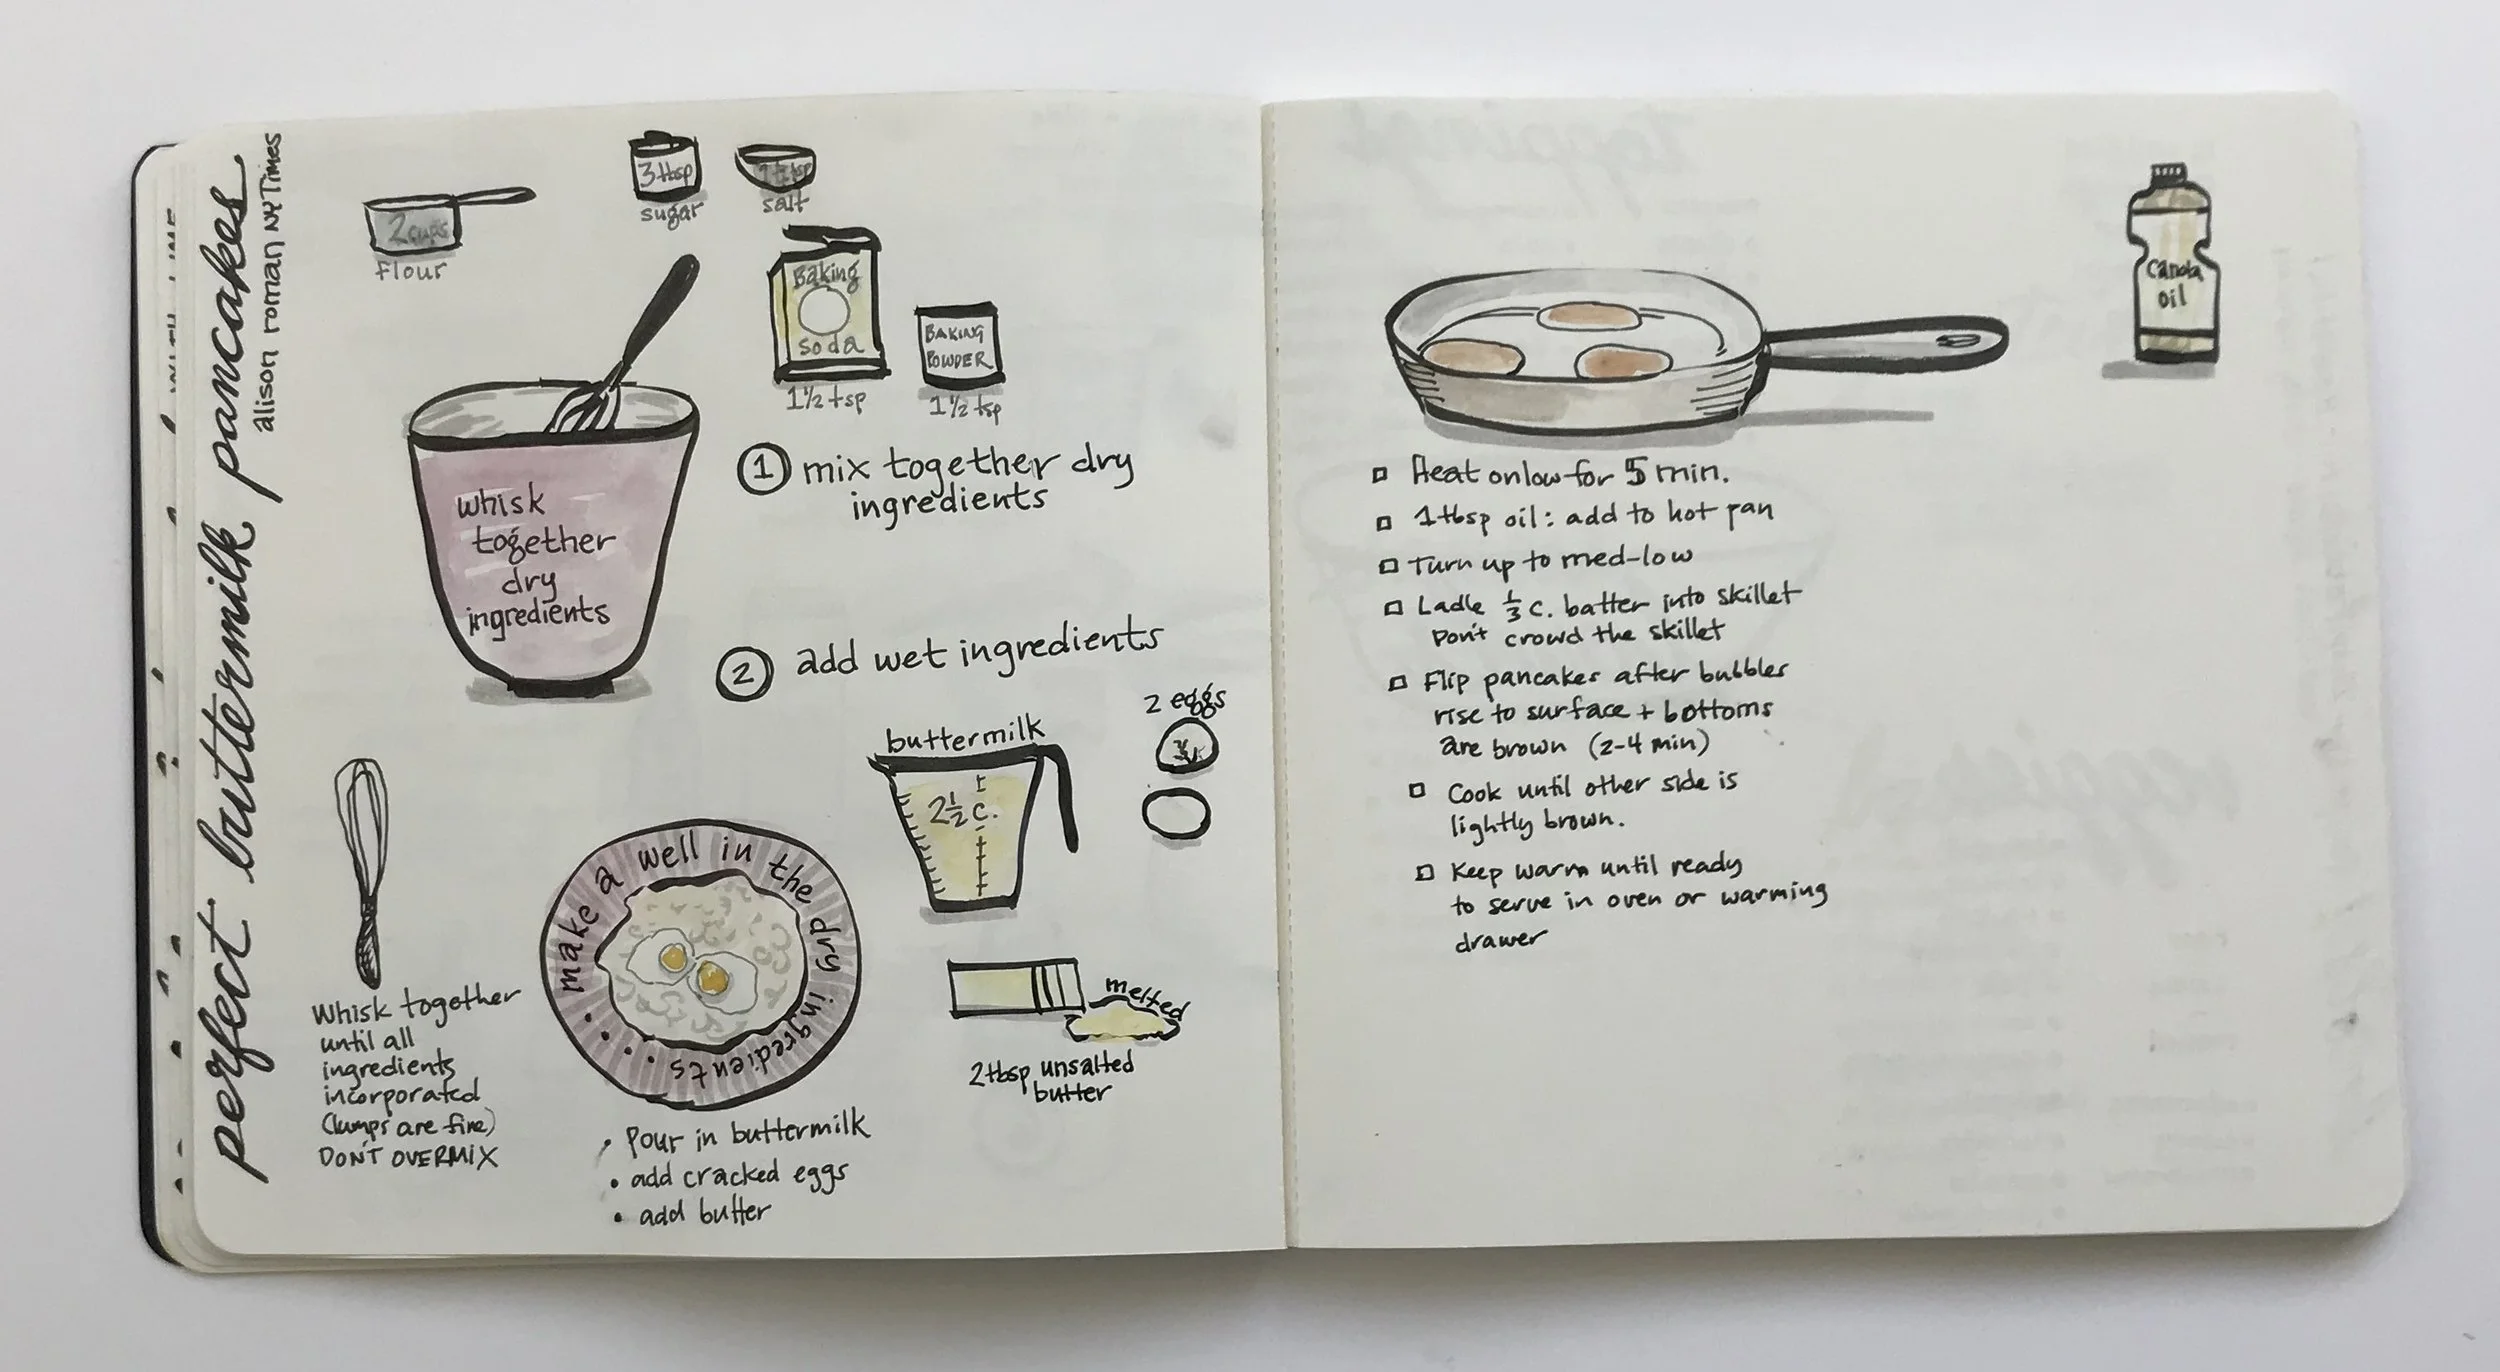 perfect buttermilk pancakes
alison roman NY Times
2 cups
flour
3 tbsp
sugar
salt
Baking
soda
1 1/2 tsp
BAKING
POWDER
1 1/2 tsp
whisk
together
dry
ingredients
1 mix together dry
ingredients
2 add wet ingredients
buttermilk
2 1/2 c.
2 eggs
melted
2 tbsp unsalted
butter
make a well in the dry ingredients....
Whisk together
until all
ingredients
incorporated
(lumps are fine)
DON'T OVERMIX
• Pour in buttermilk
• add cracked eggs
• add butter
Canola
oil
□ Heat on low for 5 min.
□ 1 tbsp oil: add to hot pan
□ Turn up to med-low
□ Ladle 1/3 c. batter into skillet
Don't crowd the skillet
□ Flip pancakes after bubbles
rise to surface + bottoms
are brown (2-4 min)
□ Cook until other side is
lightly brown.
□ Keep warm until ready
to serve in oven or warming
drawer